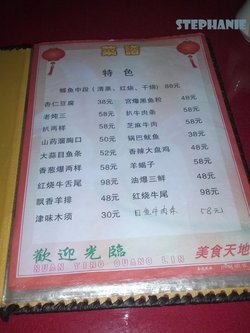 STEPHANIE
菜譜
特色
鳕鱼中段（清蒸、红烧、干烧）88元
杏仁豆腐 38元 宫爆黑鱼粒 48元
老炖三 58元 扒牛肉条 58元
扒两样 58元 芝麻牛肉 58元
山药溜胸口 50元 锅巴鱿鱼 48元
大蒜目鱼条 52元 香辣大盘鸡 48元
香葱爆两样 58元 羊蝎子 58元
红烧牛舌尾 98元 油爆三鲜 48元
飘香羊排 48元 红烧牛尾 98元
津味木须 30元 目鱼牛肉条 58元
歡迎光臨 美食天地
HUAN YING GUANG LIN